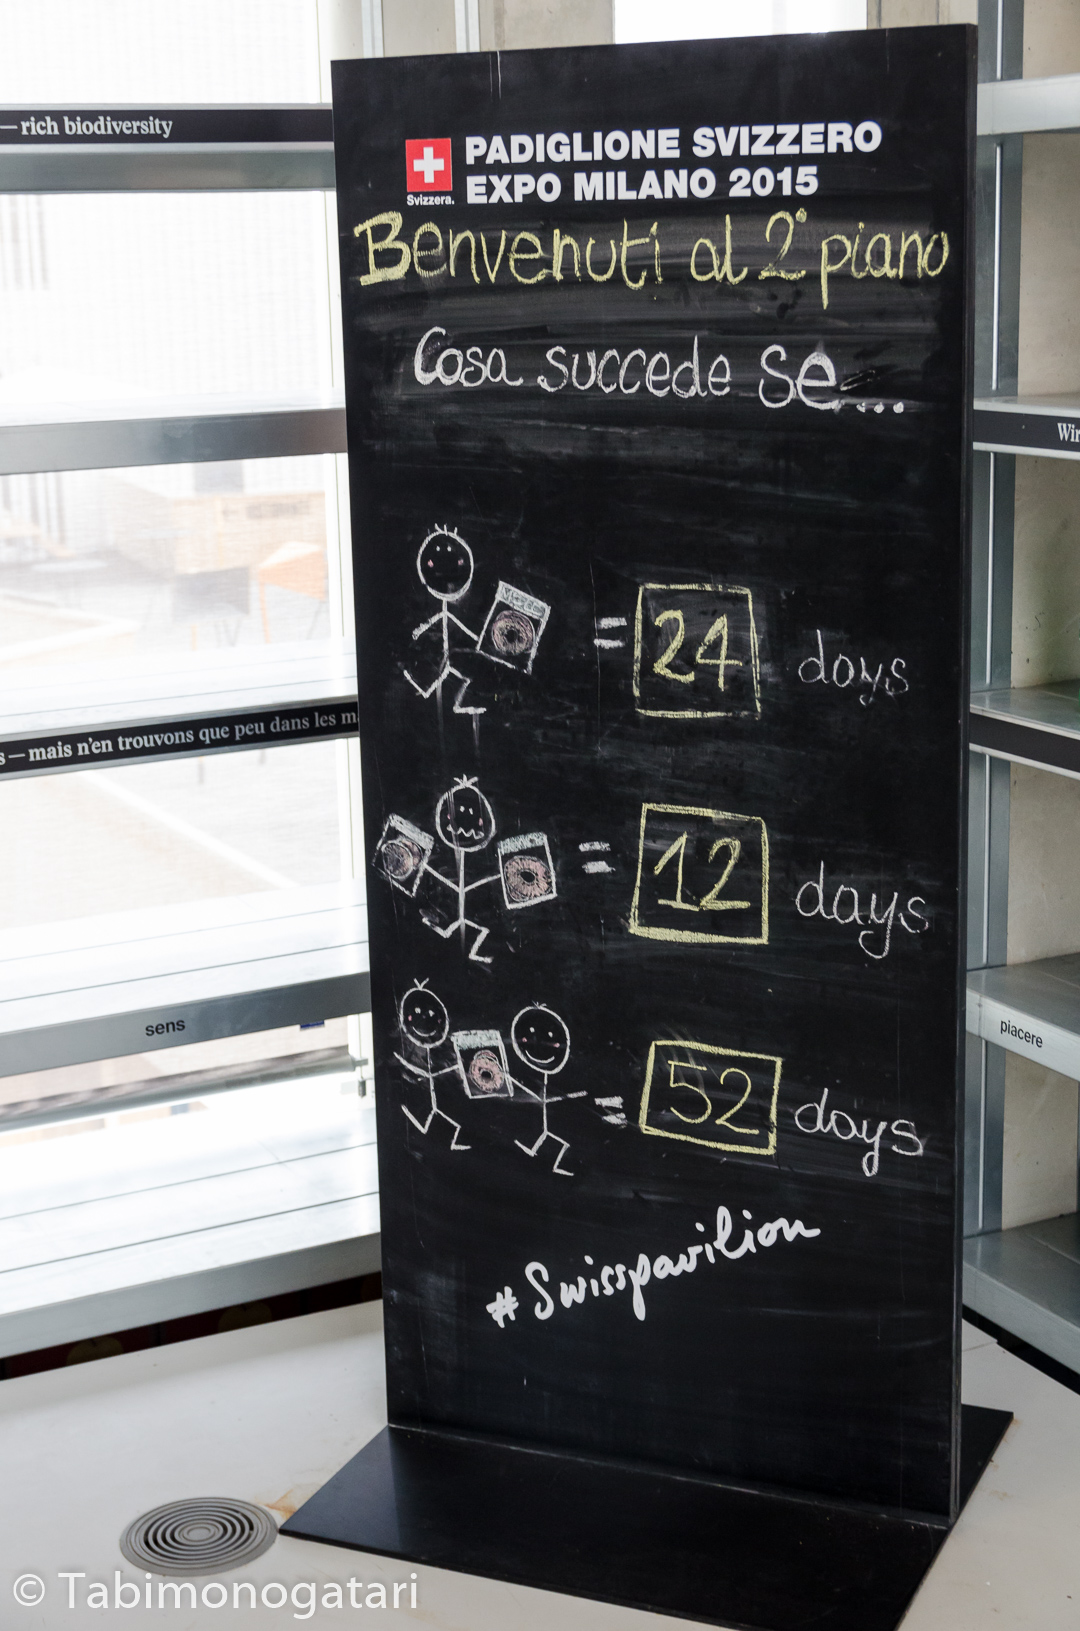 — rich biodiversity
PADIGLIONE SVIZZERO
EXPO MILANO 2015
Svizzera.
Benvenuti al 2° piano
Cosa succede se...
= 24 days
— mais n'en trouvons que peu dans les
= 12 days
sens
piacere
= 52 days
#Swisspavilion
© Tabimonogatari